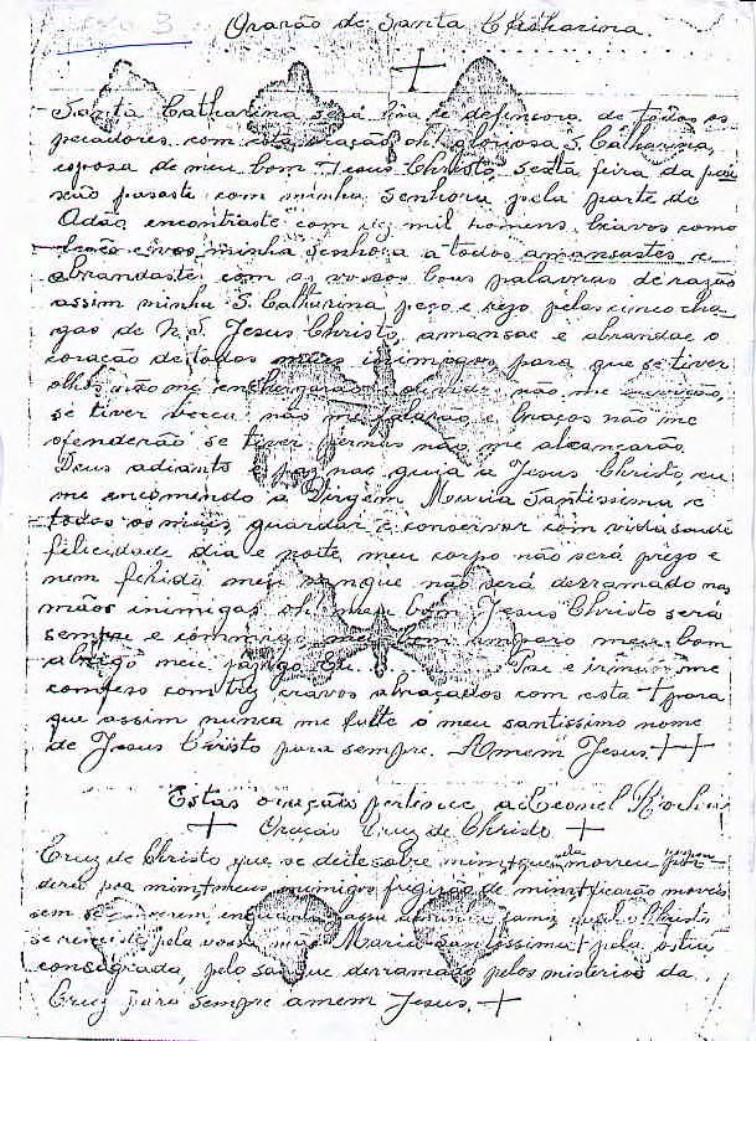 3
Oração de Santa Catharina.
Santa Catharina será e defensora de todos os
pecadores com esta oração, oh! gloriosa S. Catharina,
esposa de meu bom Jesus Christo, sexta feira da pai
xão pasaste com minha senhora pela parte de
Adão encontraste com dez mil homens bravos como
leões e vos minha senhora a todos amansastes e
abrandastes com as vossos bous palavras de razão
assim minha S. Catharina, peço e rezo pelas cinco cha
gas de N. S. Jesus Christo, amansae e abrandae o
coração de todos meus inimigos para que se tiver
olhos não me enchergarão e ouvido não me ouvirão,
se tiver bocca não me falarão e braços não me
ofenderão se tiver pernas não me alcançarão
Deus adiante e paz na guia a Jesus Christo, eu
me encomindo a Virgem Maria Santissima e
todos os mais, guardar e conservar com vida saude
felicidade dia e noite, meu corpo não será prezo e
nem ferido meu sangue não será derramado nas
mãos inimigas oh! meu bom Jesus Christo será
sempre e commigo, meu bom amparo meu bom
abrigo meu Eu. . . . . . . Pai e me
confeso com trez cravos abraçados com esta + para
que assim nunca me falte o meu santissimo nome
de Jesus Christo para sempre. Amem Jesus ++
Estas oração pertence a Leonel Rocha
+ Oração Cruz de Christo +
Cruz de Christo que se deite sobre mim + quem nela morreu
dera por mim + meus inimigos fugirão de mim + ficarão
sem se Christo
se pela vossa mãe Maria Santissima + pela ostia
consagrada, pelo sangue derramado pelos misterios da
Cruz para sempre amem Jesus. +